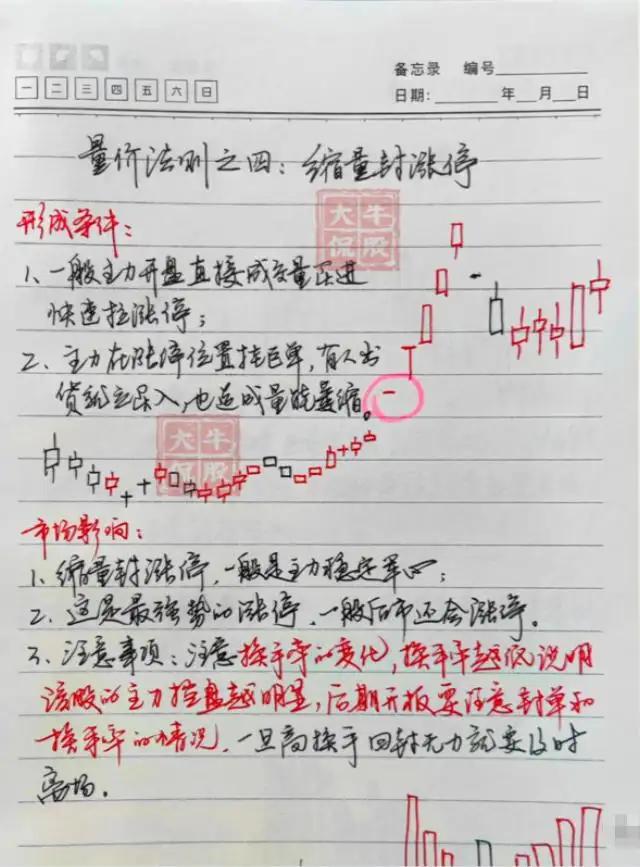 备忘录 编号
一 二 三 四 五 六 日
日期: 年 月 日
量价法则之四：缩量封涨停
大牛
侃股
形成条件：
1、一般主力开盘直接成交量跃进
快速拉涨停；
2、主力在涨停位置挂巨单，有人出
货就立买入，也造成量能萎缩。
大牛
侃股
市场影响：
1、缩量封涨停，一般是主力稳定军心；
2、这是最强势的涨停，一般后市还会涨停。
3、注意事项：注意换手率的变化，换手率越低说明
该股的主力控盘越明显，后期开板要注意封单和
换手率的情况，一旦高换手回封无力就要及时
离场.